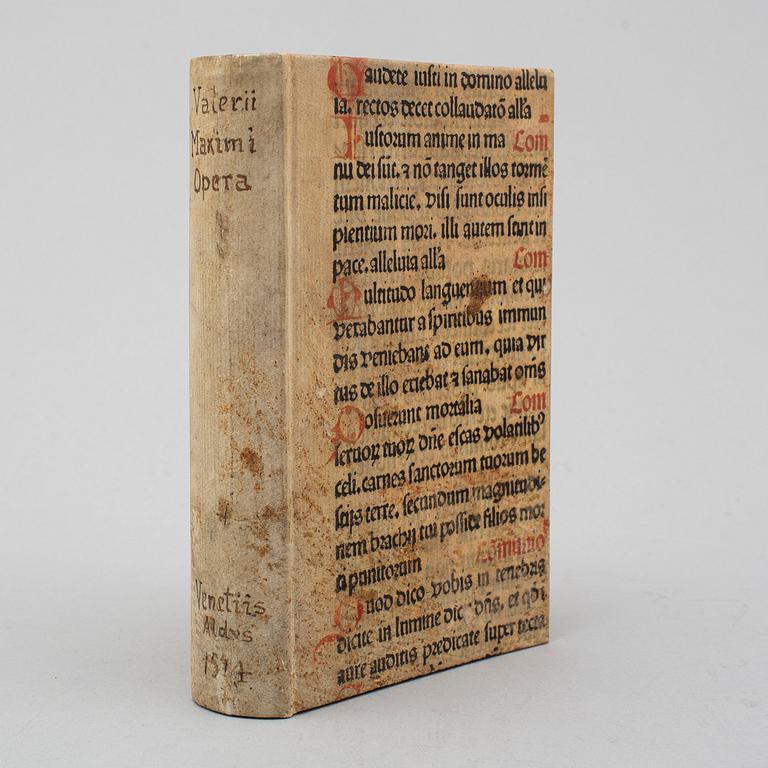 Valerii
Maximi
Opera
Venetiis
Aldvs
Gaudete iusti in domino allelu
ia. rectos decet collaudatō all'a
Iustorum anime in ma Com
nu dei sūt. ⁊ nō tanget illos tormē
tum malicie. visi sunt oculis insi
pientium mori. illi autem sunt in
pace. alleluia all'a Com
Multitudo languentium et qui
vexabantur a spiritibus immun
dis veniebant ad eum. quia vir
tus de illo exiebat ⁊ sanabat om̄s
Posuerunt mortalia Com
seruoꝝ tuoꝝ dn̄e escas volatilibꝰ
celi. carnes sanctorum tuorum be
stijs terre. secundum magnitudi-
nem brachij tui posside filios mor
ti punitorum Cōmunio
Quod dico vobis in tenebris
dicite in lumine dic' dn̄s. et qd' i
aure auditis predicate super tecta.